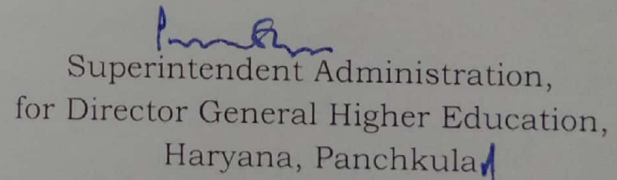 Superintendent Administration,
for Director General Higher Education,
Haryana, Panchkula